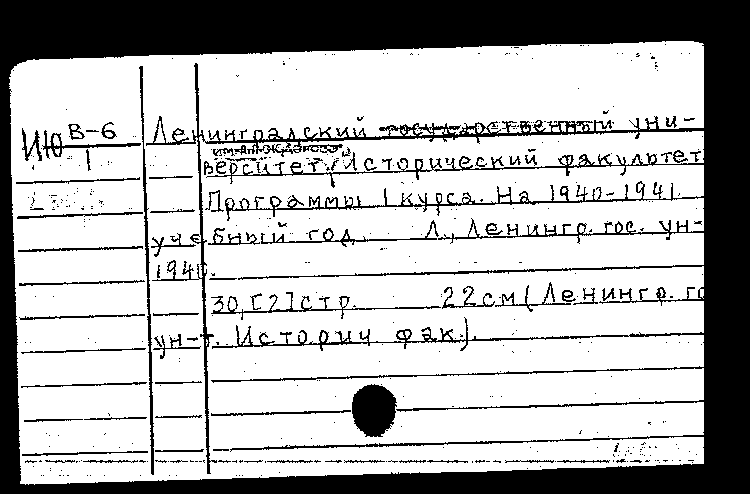 ИЮ В-6
1
Ленинградский государственный уни-
им. А.А. Жданова
верситет. Исторический факультет.
Программы 1 курса. На 1940-1941
учебный год. Л., Ленингр. гос. ун-
1940.
30, [2] стр. 22 см (Ленингр. го
ун-т. Историч фак).